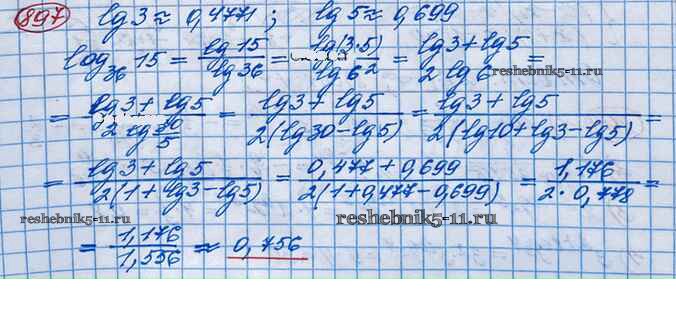 897 lg 3 ≈ 0,4771 ; lg 5 ≈ 0,699
log₃₆ 15 = lg 15 / lg 36 = lg(3·5) / lg 6² = lg 3 + lg 5 / 2 lg 6 =
reshebnik5-11.ru
= lg 3 + lg 5 / 2 lg 30/5 = lg 3 + lg 5 / 2(lg 30 − lg 5) = lg 3 + lg 5 / 2(lg 10 + lg 3 − lg 5) =
= lg 3 + lg 5 / 2(1 + lg 3 − lg 5) = 0,477 + 0,699 / 2(1 + 0,477 − 0,699) = 1,176 / 2 · 0,778 =
reshebnik5-11.ru reshebnik5-11.ru
= 1,176 / 1,556 ≈ 0,756